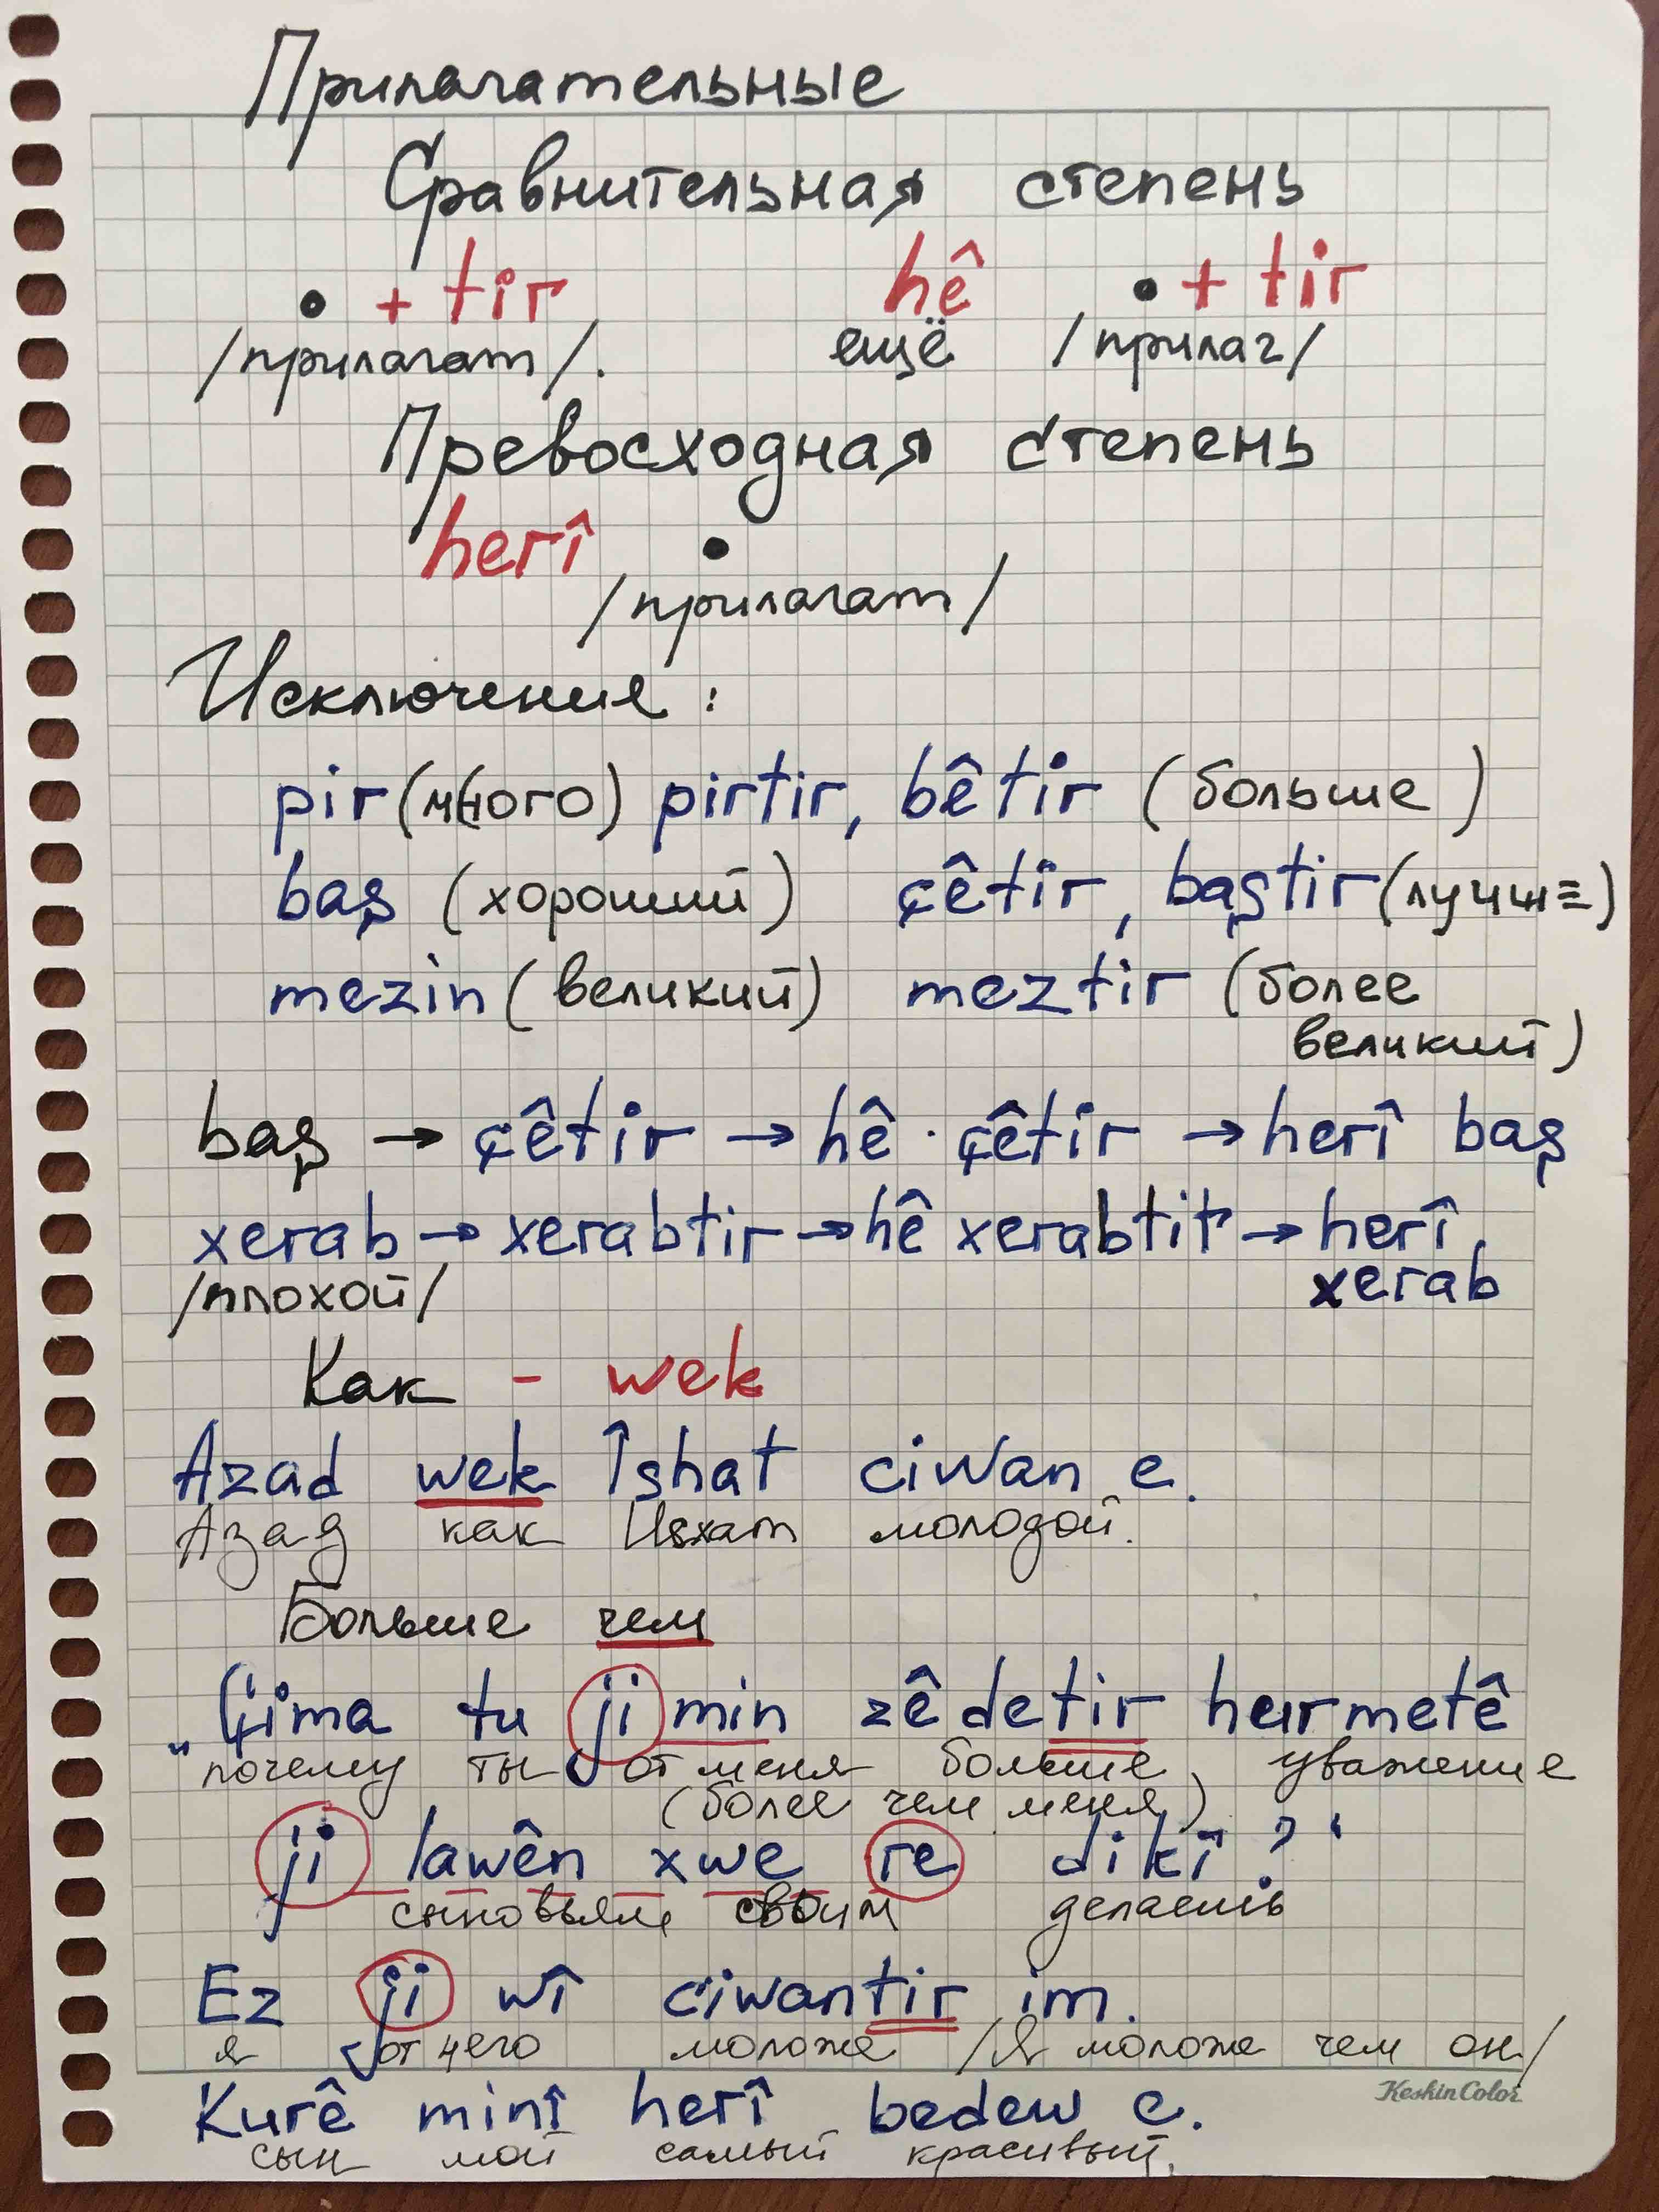 Прилагательные
Сравнительная степень
• + tir hê • + tir
/прилагат/. ещё /прилаг/
Превосходная степень
herî •
/прилагат/
Исключения:
pir (много) pirtir, bêtir (больше)
baş (хороший) çêtir, baştir (лучше)
mezin (великий) meztir (более
великий)
baş → çêtir → hê çêtir → herî baş
xerab → xerabtir → hê xerabtir → herî
/плохой/ xerab
Как - wek
Azad wek Îshat ciwan e.
Азад как Исхат молодой.
Больше чем
„Çima tu ji min zêdetir hurmetê
почему ты от меня больше уважение
(более чем меня)
ji lawên xwe re dikî?“
сыновьям своим делаешь
Ez ji wî ciwantir im.
я от него моложе /Я моложе чем он/
KeskinColor
Kurê minî herî bedew e.
сын мой самый красивый.